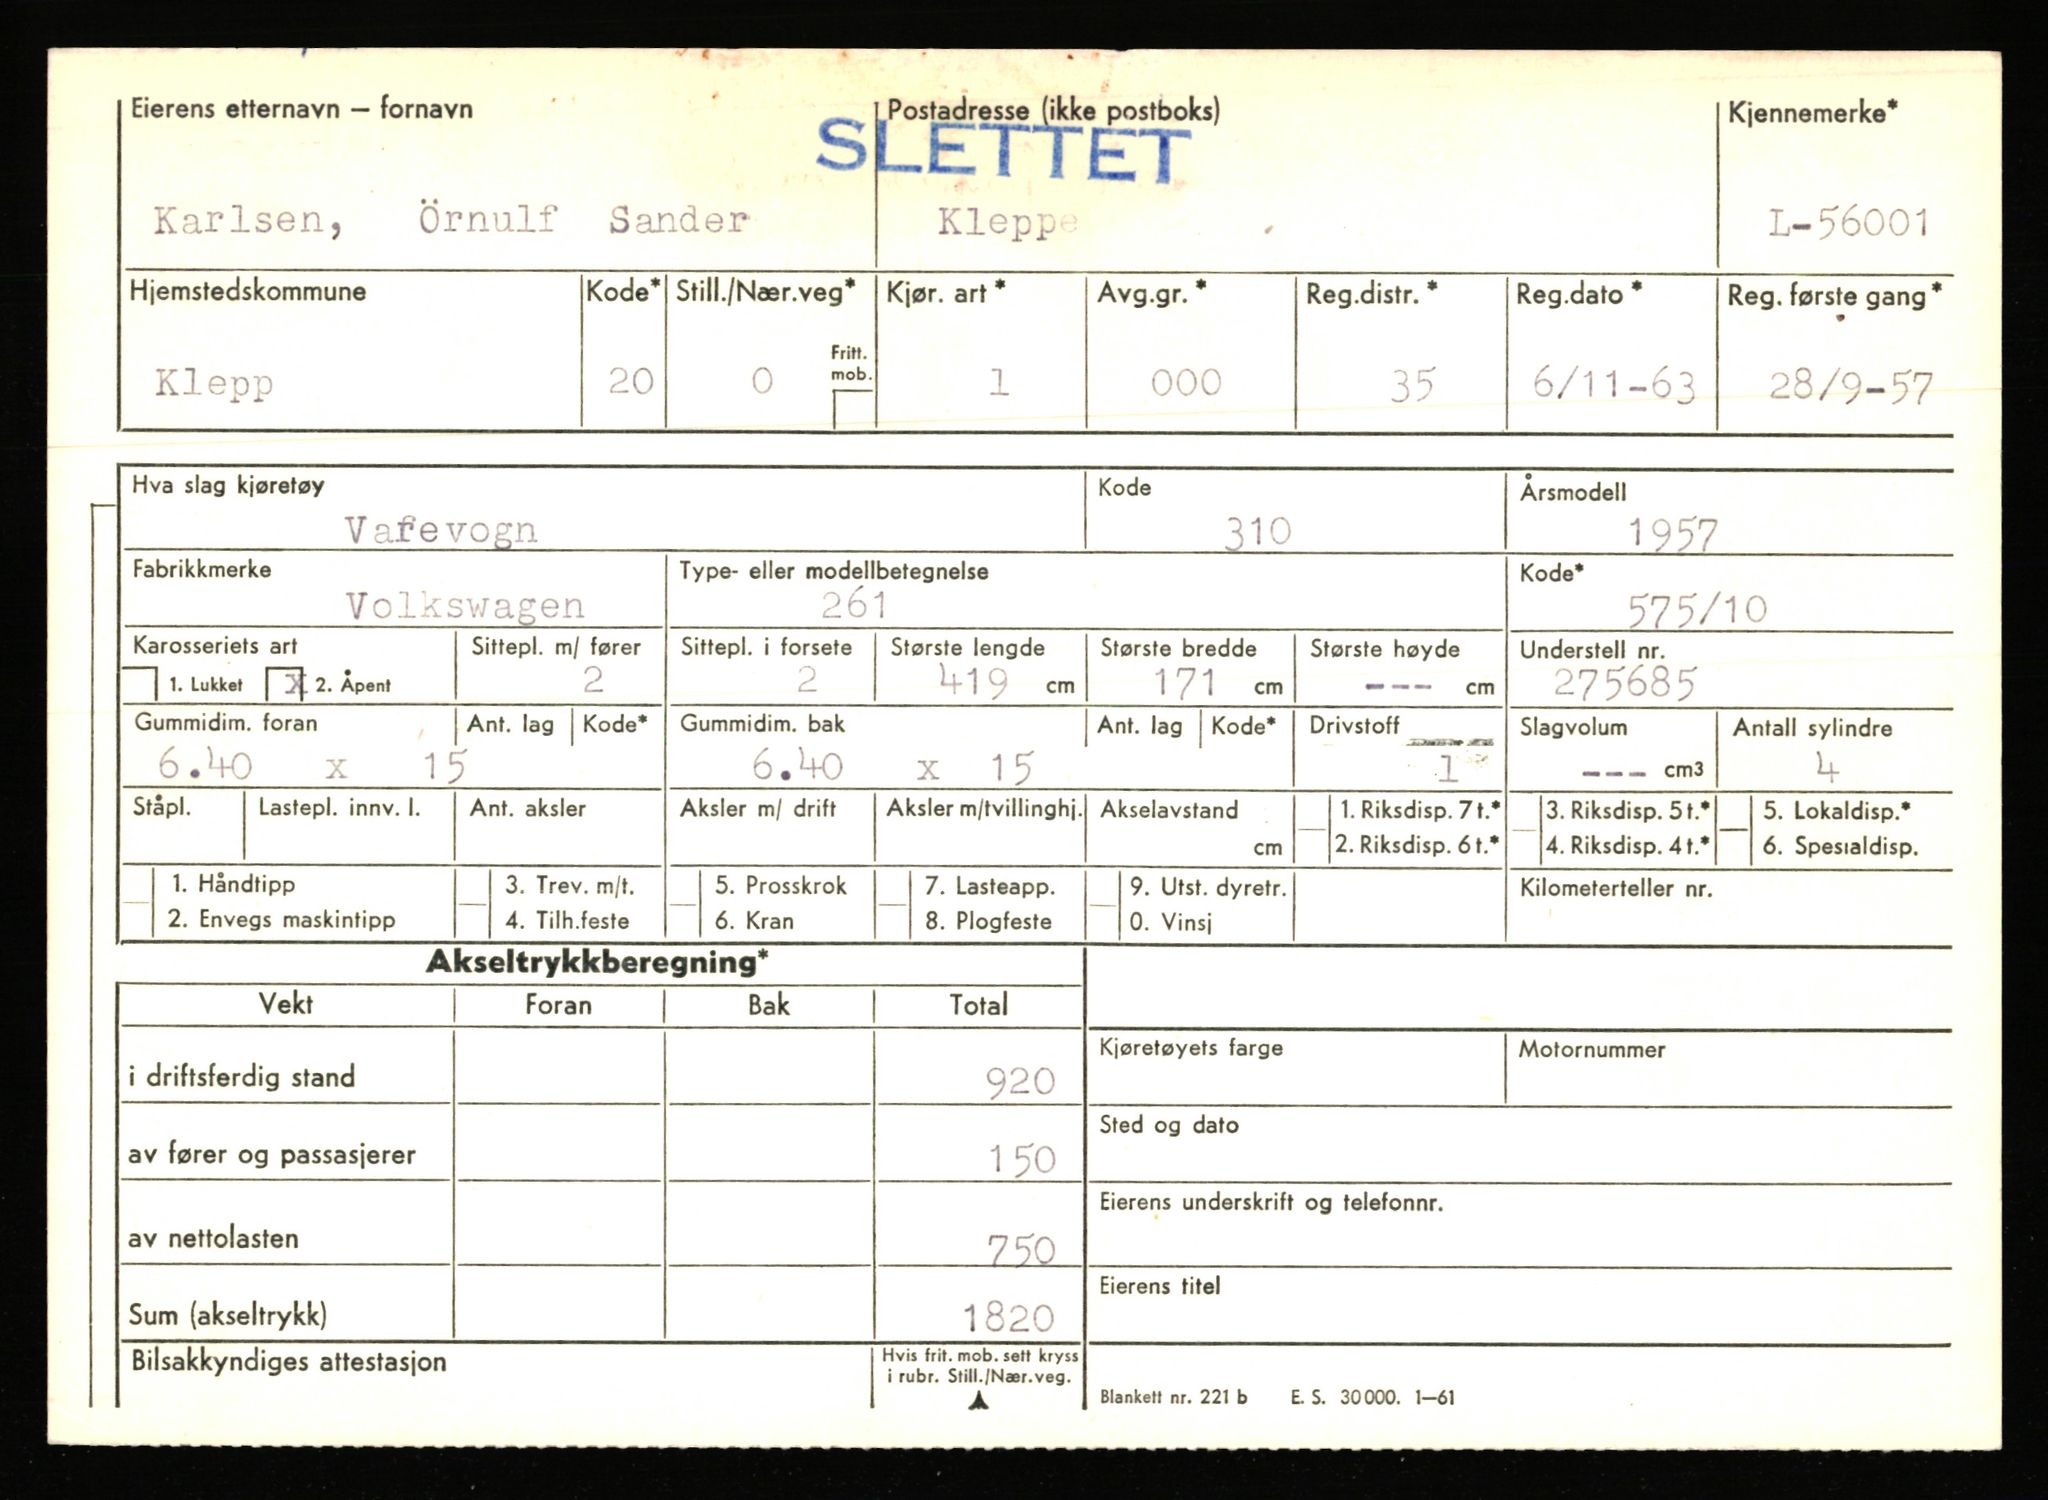 Eierens etternavn – fornavn Postadresse (ikke postboks) Kjennemerke*
SLETTET
Karlsen, Örnulf Sander Kleppe L-56001
Hjemstedskommune Kode* Still./Nær.veg* Kjør. art* Avg.gr.* Reg.distr.* Reg.dato* Reg. første gang*
Fritt. mob.
Klepp 20 0 1 000 35 6/11-63 28/9-57
Hva slag kjøretøy Kode Årsmodell
Varevogn 310 1957
Fabrikkmerke Type- eller modellbetegnelse Kode*
Volkswagen 261 575/10
Karosseriets art Sittepl. m/ fører Sittepl. i forsete Største lengde Største bredde Største høyde Understell nr.
1. Lukket x 2. Åpent 2 2 419 cm 171 cm --- cm 275685
Gummidim. foran Ant. lag Kode* Gummidim. bak Ant. lag Kode* Drivstoff Slagvolum Antall sylindre
6.40 x 15 6.40 x 15 1 --- cm3 4
Ståpl. Lastepl. innv. l. Ant. aksler Aksler m/ drift Aksler m/tvillinghj. Akselavstand 1. Riksdisp. 7 t.* 3. Riksdisp. 5 t.* 5. Lokaldisp.*
cm 2. Riksdisp. 6 t.* 4. Riksdisp. 4 t.* 6. Spesialdisp.
1. Håndtipp 3. Trev. m/t. 5. Prosskrok 7. Lasteapp. 9. Utst. dyretr. Kilometerteller nr.
2. Envegs maskintipp 4. Tilh.feste 6. Kran 8. Plogfeste 0. Vinsj
Akseltrykkberegning*
Vekt Foran Bak Total
Kjøretøyets farge Motornummer
i driftsferdig stand 920
Sted og dato
av fører og passasjerer 150
Eierens underskrift og telefonnr.
av nettolasten 750
Eierens titel
Sum (akseltrykk) 1820
Bilsakkyndiges attestasjon Hvis frit. mob. sett kryss
i rubr. Still./Nær.veg.
Blankett nr. 221 b E. S. 30 000. 1–61